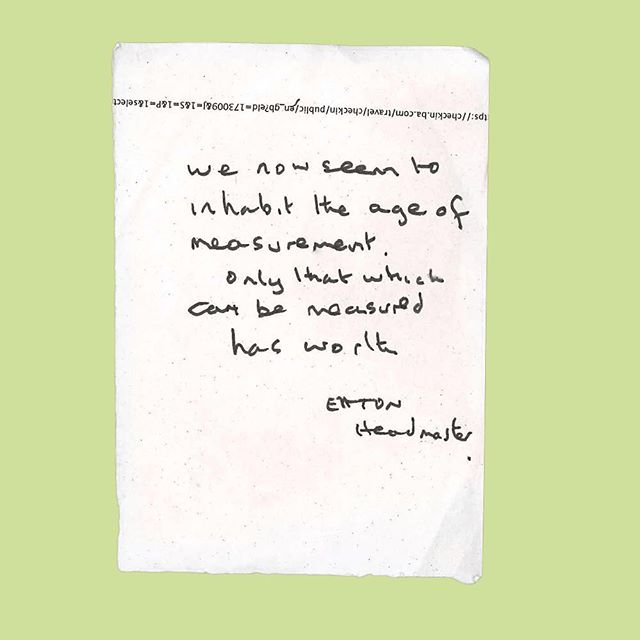 tps://checkin.ba.com/travel/checkin/public/en_gb?eId=173009&j=1&S=1&P=1&select
we now seem to
inhabit the age of
measurement.
only that which
can be measured
has worth
EATON
Headmaster
.